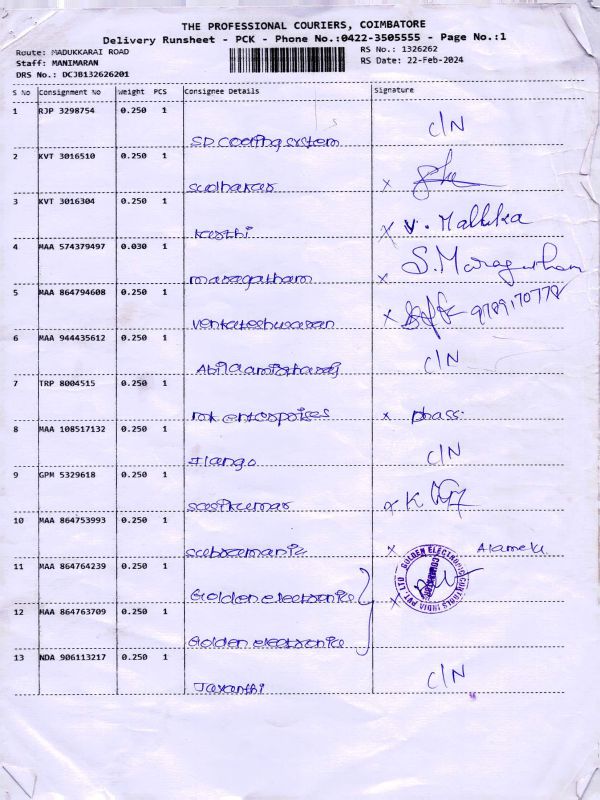 THE PROFESSIONAL COURIERS, COIMBATORE
Delivery Runsheet - PCK - Phone No.:0422-3505555 - Page No.:1
Route: MADUKKARAI ROAD
RS No.: 1326262
Staff: MANIMARAN
RS Date: 22-Feb-2024
DRS No.: DCJB132626201
S No Consignment No Weight PCS Consignee Details Signature
1 RJP 3298754 0.250 1
SD cooling system C/N
2 KVT 3016510 0.250 1
Sudhakar x
3 KVT 3016304 0.250 1
Karthi x V. Mallika
4 MAA 574379497 0.030 1
maragatham x S. Maragatham
5 MAA 864794608 0.250 1
Venkateshwaran x 9789170778
6 MAA 944435612 0.250 1
C/N
7 TRP 8004515 0.250 1
mk enterprises x
8 MAA 108517132 0.250 1
Ilango C/N
9 GPM 5329618 0.250 1
Sasikumar x K
10 MAA 864753993 0.250 1
Subramanic x Alamelu
11 MAA 864764239 0.250 1
Golden electronice x
GOLDEN ELECTRONIC CONTROLS INDIA PVT. LTD
COIMBATORE
12 MAA 864763709 0.250 1
Golden electronice
13 NDA 906113217 0.250 1
Jayanthi C/N